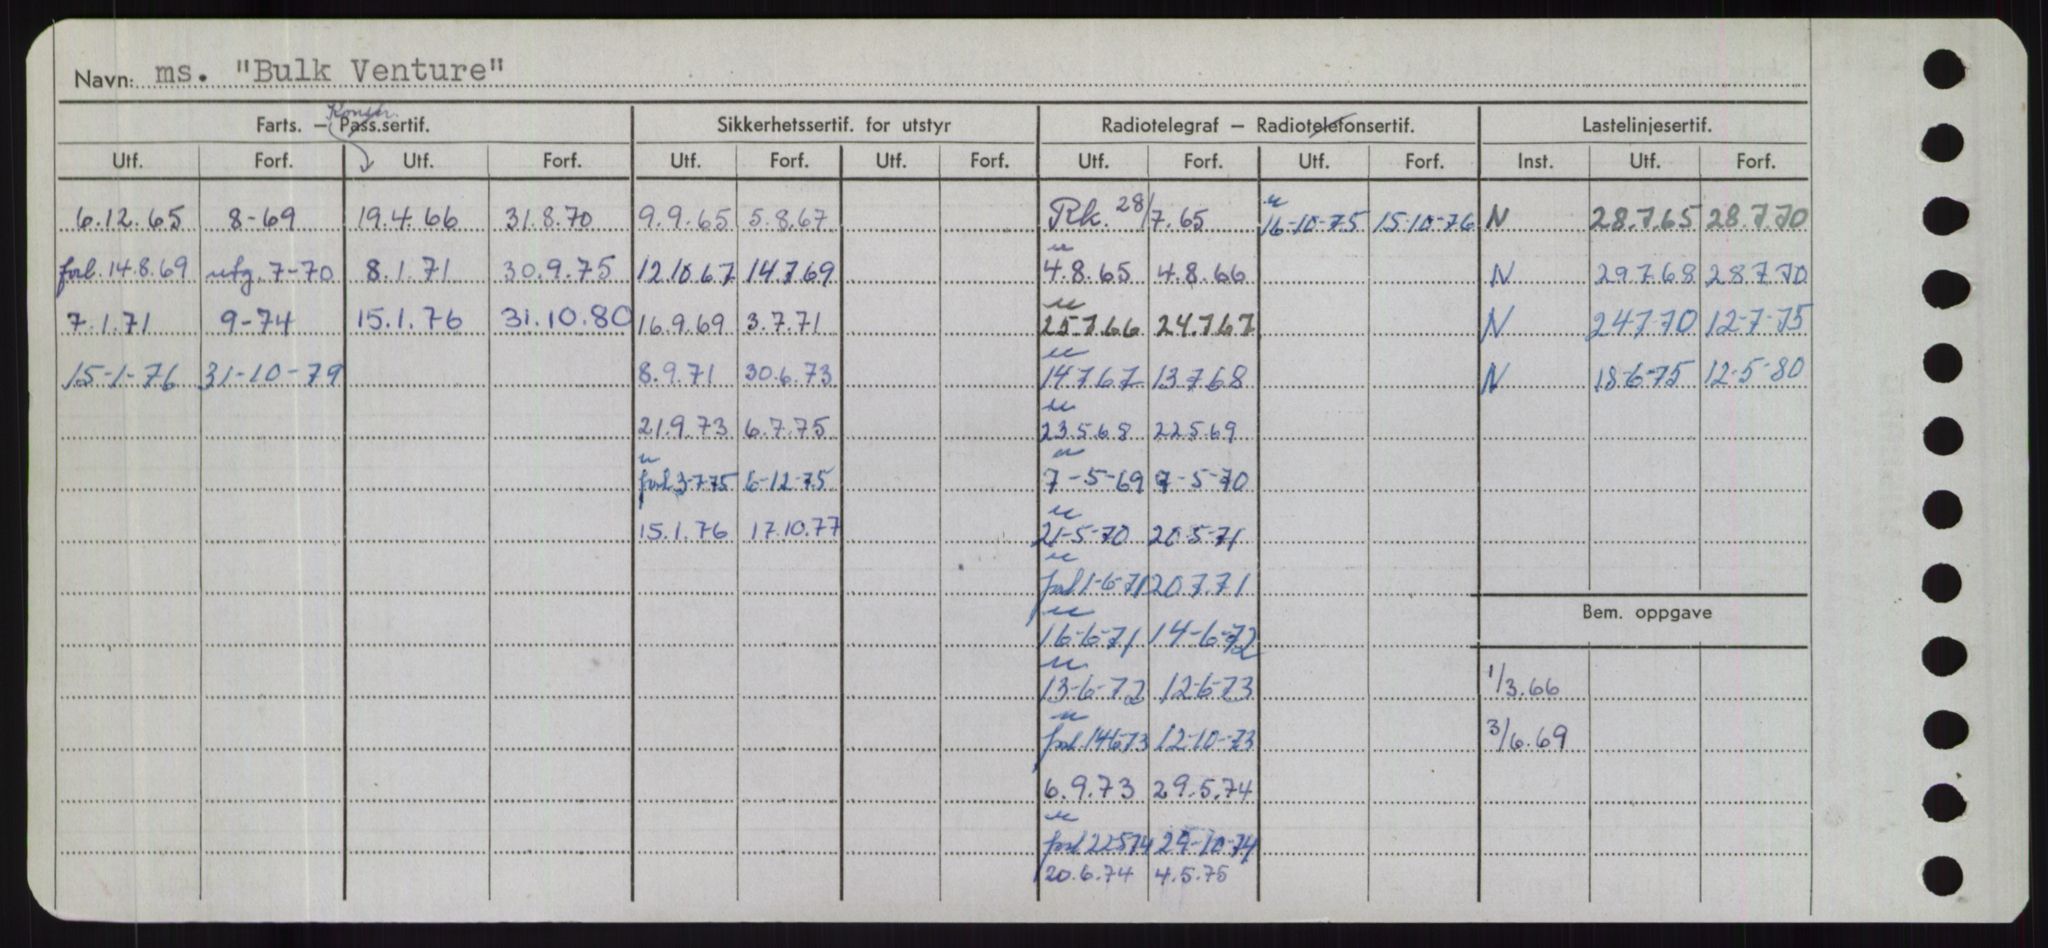 Navn: ms. "Bulk Venture"
Konstr.
Farts. — Pass.sertif. Sikkerhetssertif. for utstyr Radiotelegraf — Radiotelefonsertif. Lastelinjesertif.
Utf. Forf. Utf. Forf. Utf. Forf. Utf. Forf. Utf. Forf. Utf. Forf. Inst. Utf. Forf.
6.12.65 8-69 19.4.66 31.8.70 9.9.65 5.8.67 Rk. 28/7.65 16-10-75 15-10-76 N 28.7.65 28.7.70
forl. 14.8.69 utg. 7-70 8.1.71 30.9.75 12.10.67 14.7.69 4.8.65 4.8.66 N 29.7.68 28.7.70
7.1.71 9-74 15.1.76 31.10.80 16.9.69 3.7.71 25.7.66 24.7.67 N 24.7.70 12-7-75
15-1-76 31-10-79 8.9.71 30.6.73 14.7.67 13.7.68 N 18-6-75 12-5-80
21.9.73 6.7.75 23.5.68 22.5.69
forl. 3-7-75 6-12-75 7-5-69 7-5-70
15.1.76 17.10.77 21-5-70 20-5-71
forl 1-6-71 20.7.71
Bem. oppgave
16-6-71 14-6-72
13-6-72 12-6-73 1/3.66
forl. 14.6.73 12-10-73 3/6.69
6.9.73 29.5.74
forl 22.5.74 29-10-74
20.6.74 4.5.75